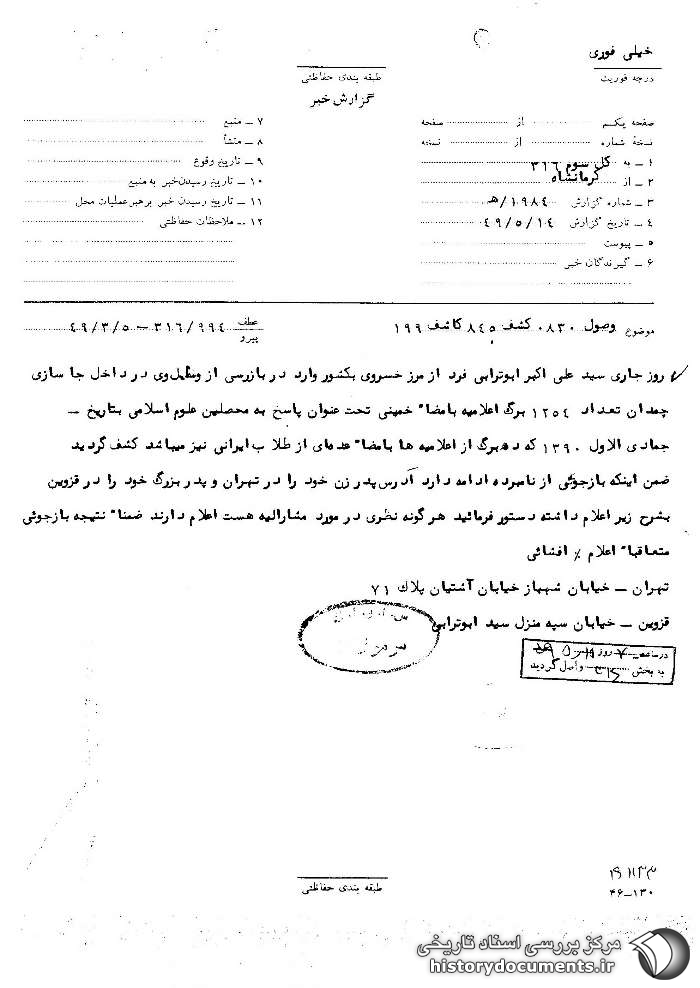 خیلی فوری
درجه فوریت
طبقه بندی حفاظتی
گزارش خبر
صفحه یکم از صفحه
نسخه شماره از نسخه
۱ ــ به کل سوم ۳۱۶
۲ ــ از کرمانشاه
۳ ــ شماره گزارش ۱۹۸۴/هـ
۴ ــ تاریخ گزارش ۴۹/۵/۱۴
۵ ــ پیوست
۶ ــ گیرندگان خبر
۷ ــ منبع
۸ ــ منشأ
۹ ــ تاریخ وقوع
۱۰ ــ تاریخ رسیدن خبر به منبع
۱۱ ــ تاریخ رسیدن خبر برهبر عملیات محل
۱۲ ــ ملاحظات حفاظتی
موضوع وصول ۰۸۳۰ کشف ۸۴۵ کاشف ۱۹۹
عطف ۳۱۶/۹۹۴ ــ ۴۹/۳/۵
پیرو
روز جاری سید علی اکبر ابوترابی فرد از مرز خسروی بکشور وارد در بازرسی از وسایل وی در داخل جا سازی
چمدان تعداد ۱۲۵۴ برگ اعلامیه بامضاء خمینی تحت عنوان پاسخ به محصلین علوم اسلامی بتاریخ ــ
جمادی الاول ۱۳۹۰ که ده برگ از اعلامیه ها بامضاء عده‌ای از طلاب ایرانی نیز میباشد کشف گردید
ضمن اینکه بازجوئی از نامبرده ادامه دارد آدرس پدر زن خود را در تهران و پدر بزرگ خود را در قزوین
بشرح زیر اعلام داشته دستور فرمائید هر گونه نظری در مورد مشارالیه هست اعلام دارند ضمناً نتیجه بازجوئی
متعاقباً اعلام ٪ افشائی
تهران ــ خیابان شهباز خیابان آشتیان پلاک ۷۱
قزوین ــ خیابان سپه منزل سید ابوترابی
رمز
در ساعت روز
به بخش واصل گردید
طبقه بندی حفاظتی
۴۶ــ۱۳۰
مرکز بررسی اسناد تاریخی
historydocuments.ir